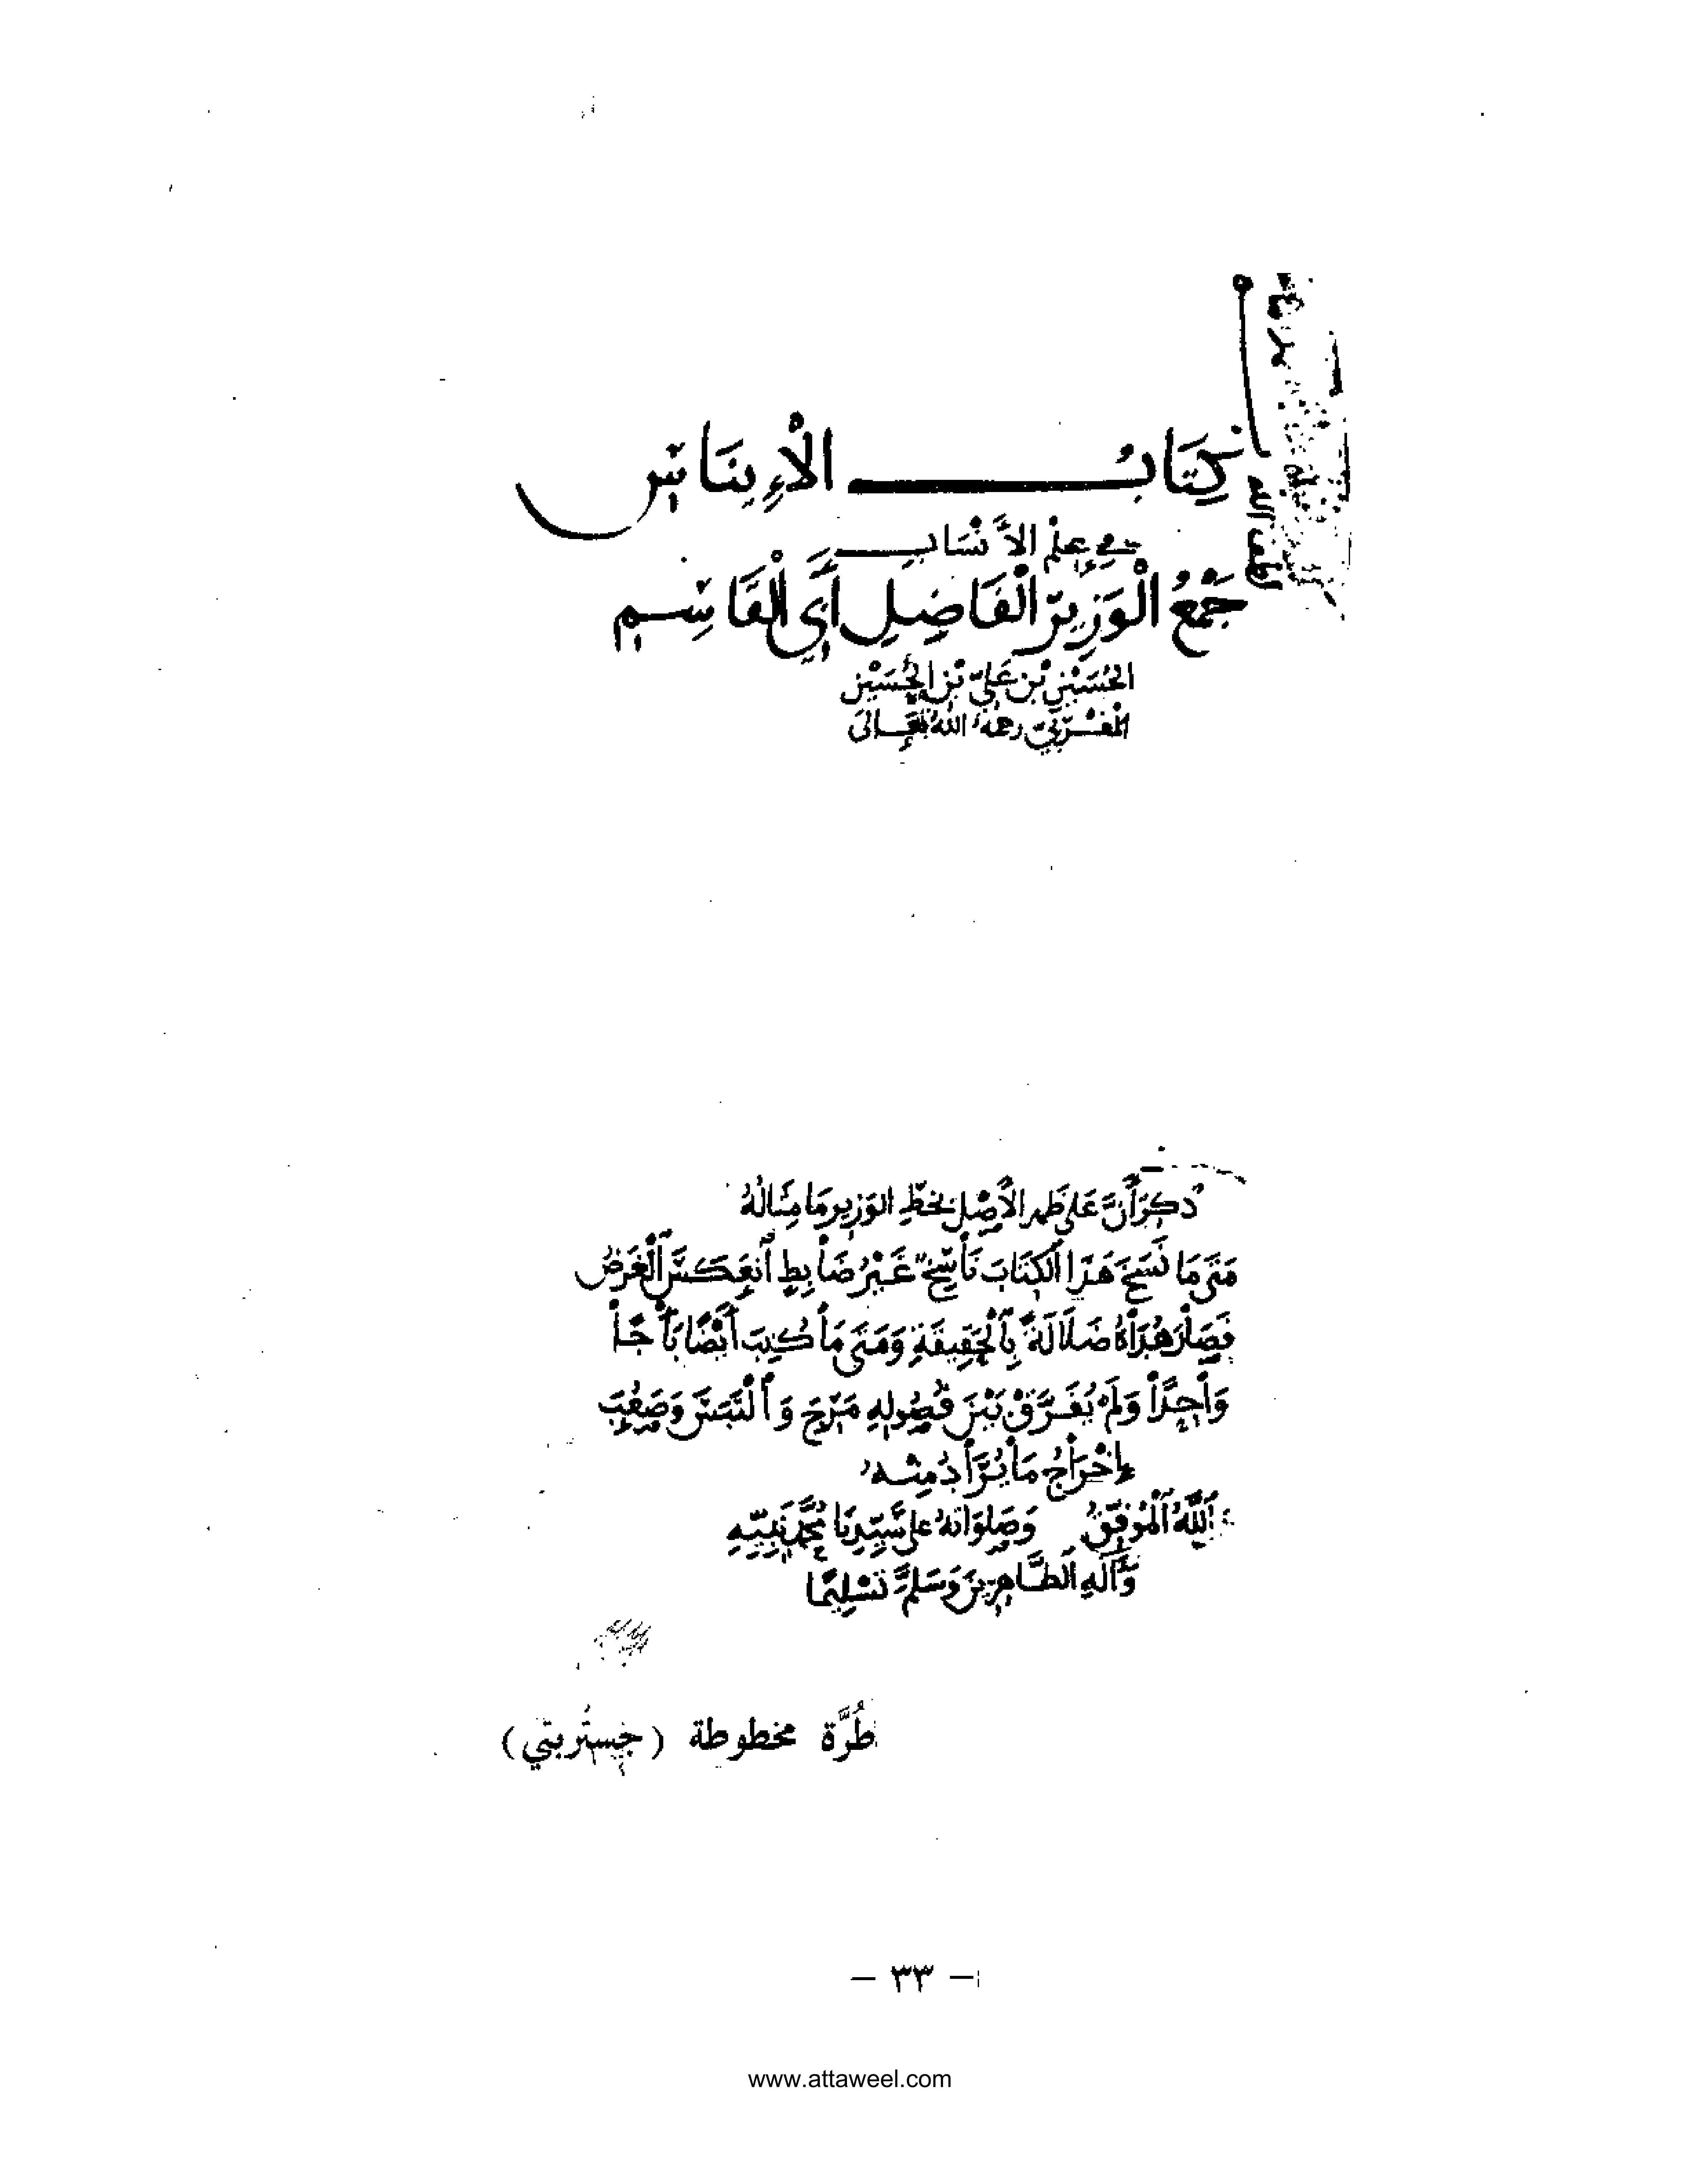 كِتَابُ الْإِينَاسِ
في عِلْمِ الأَنْسَابِ
جَمْعُ الْوَزِيرِ الْفَاضِلِ أَبِي الْقَاسِمِ
الحُسَيْنِ بْنِ عَلِيّ بْنِ الحُسَيْنِ
المَغْرِبِيّ رحمهُ اللهُ تَعَالَى
لطف الله
ذُكِرَ أَنَّ عَلَى ظَهر الأَصْلِ بخطِّ الوَزِيرِ مَا مِثَالُهُ
مَتَى مَا نَسَخَ هَذَا الْكِتَابَ نَاسِخٌ غَيْرُ ضَابِطٍ انْعَكَسَ الْغَرَضُ
فَصَارَ هُدَاهُ ضَلَالَةً بِالْحَقِيقَةِ وَمَتَى مَا كُتِبَ أَيْضًا بَابًا
وَاحِدًا وَلَمْ يُفَرَّقْ بَيْنَ فُصُولِهِ مَرَجَ وَالْتَبَسَ وَصَعُبَ
إِخْرَاجُ مَا يُرَادُ مِنْهُ
اللَّهُ الْمُوَفِّقُ وَصَلَوَاتهُ عَلى سَيِّدِنَا مُحَمَّدٍ نَبِيِّهِ
وَآلِهِ الطَّاهِرِينَ وَسَلَّمَ تَسْلِيمًا
طُرَّة مخطوطة (جِستُربتي)
- ٣٣ -
www.attaweel.com